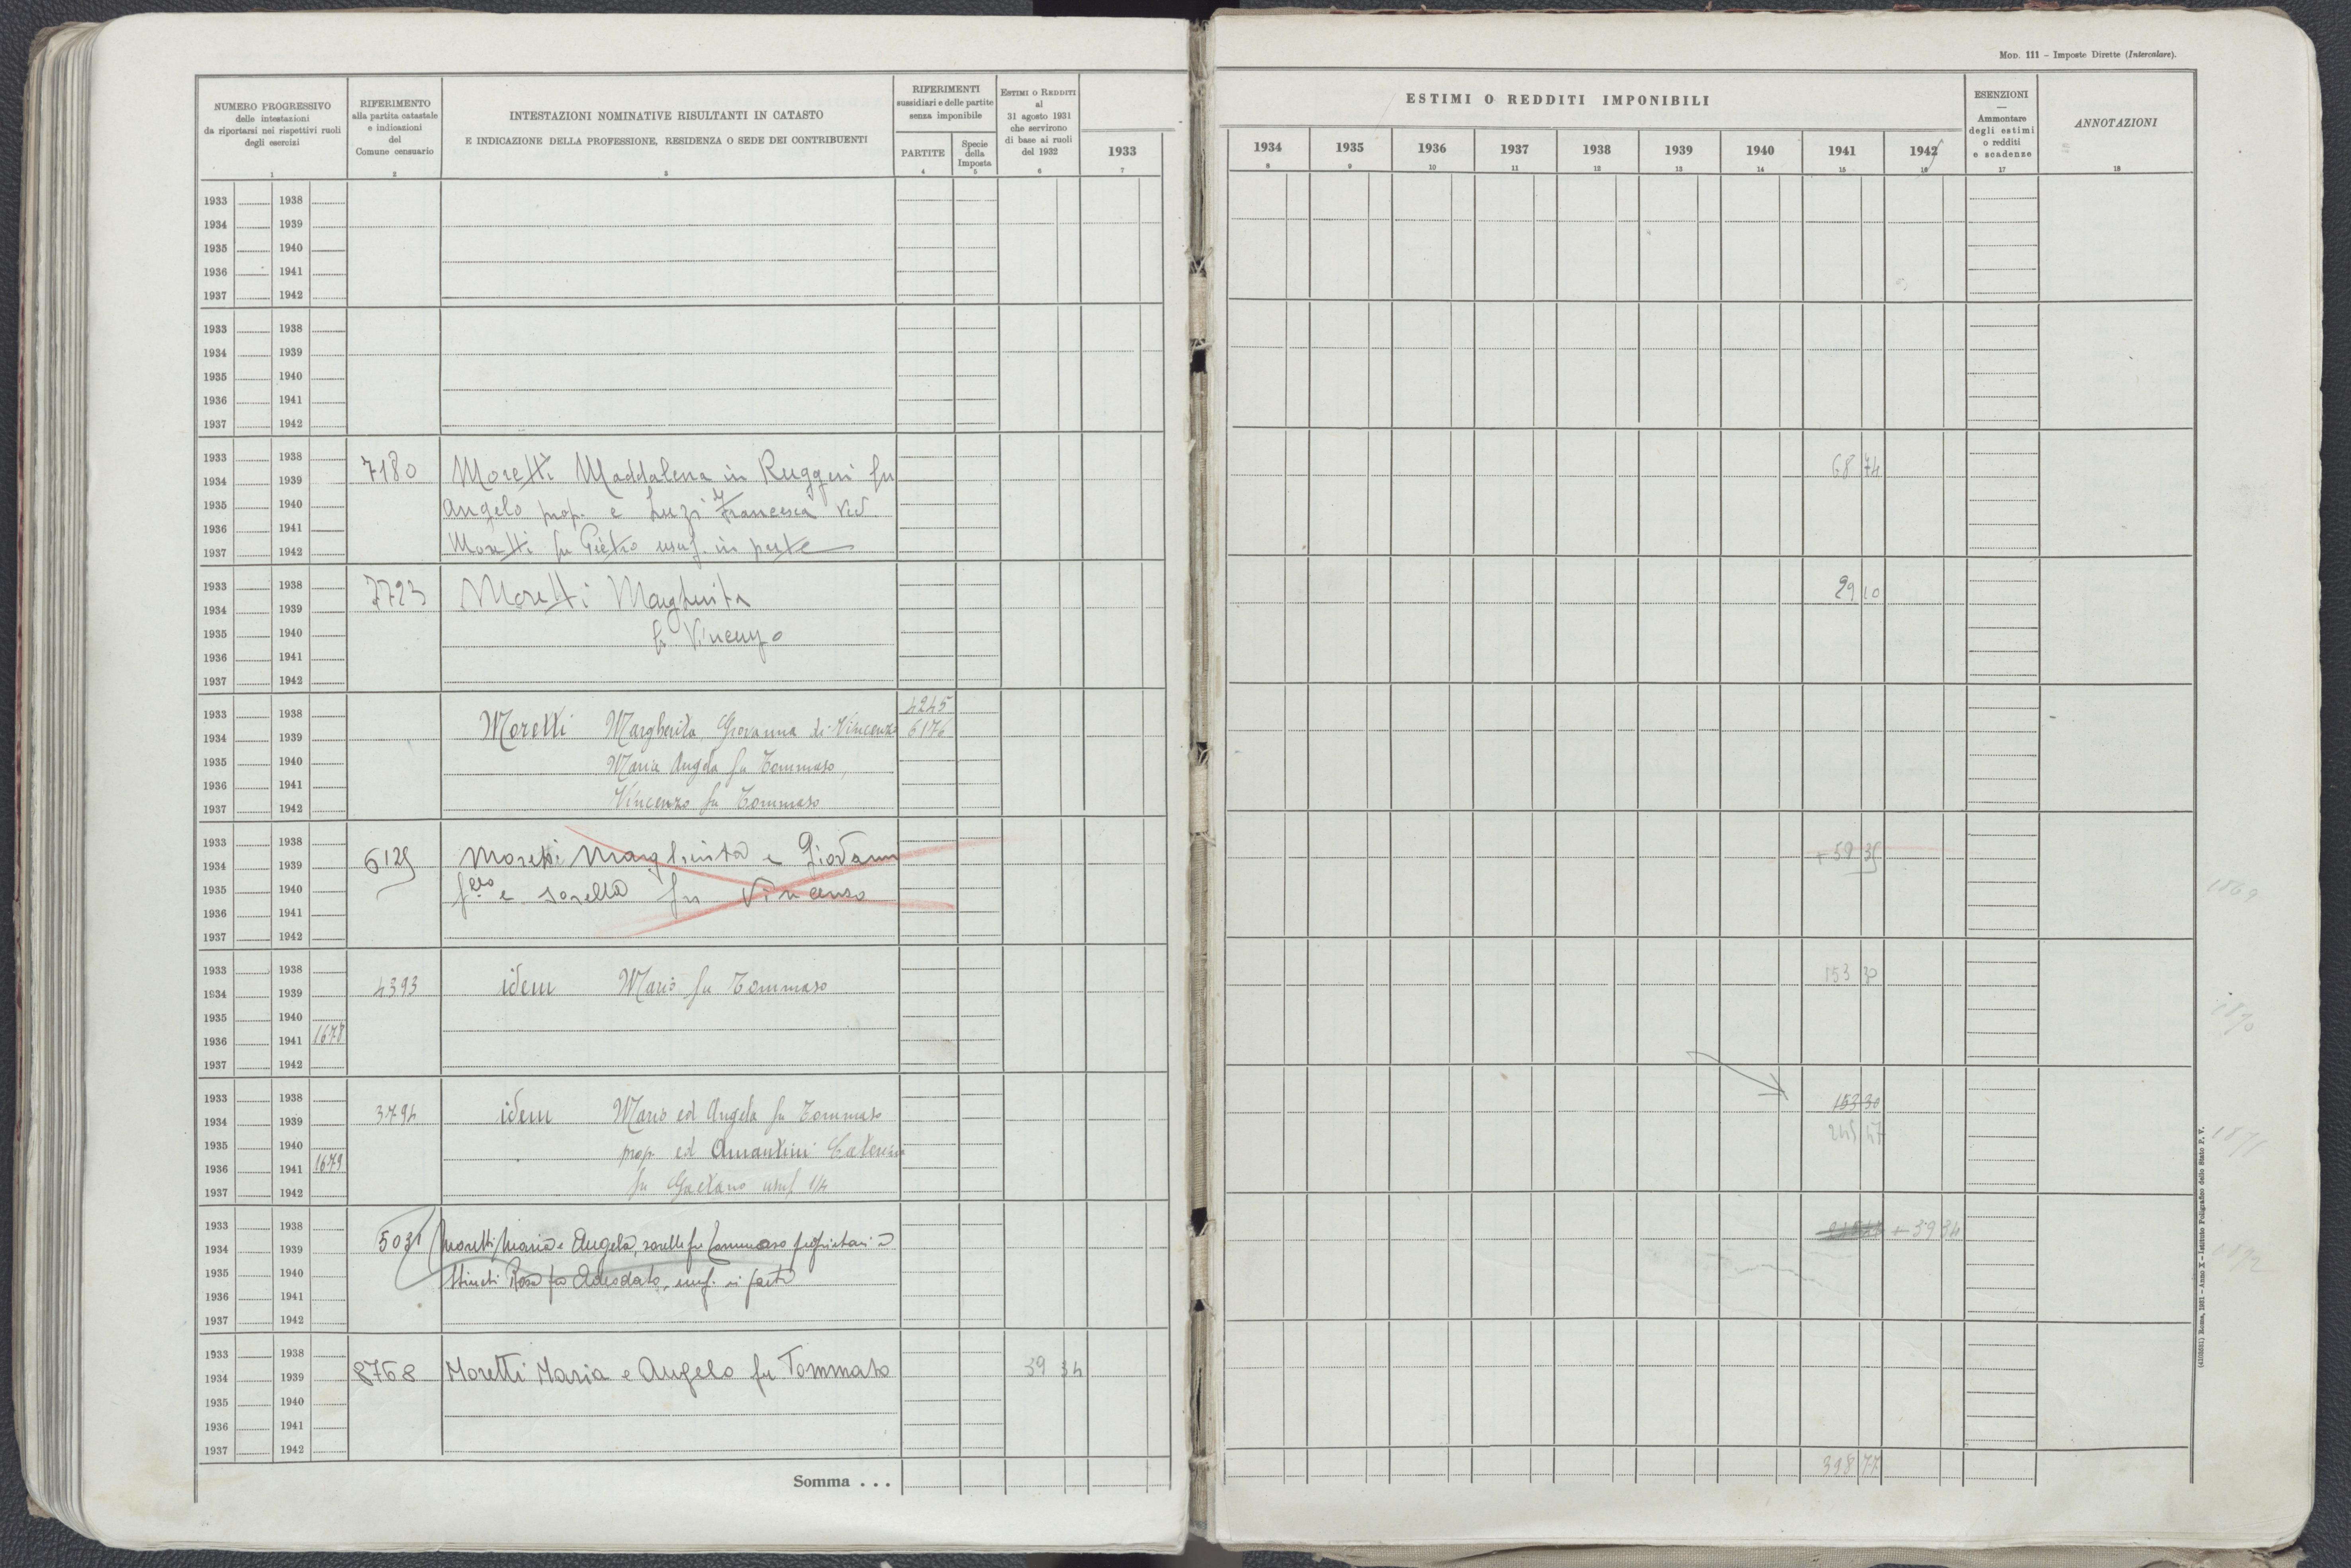 Mod. 111 – Imposte Dirette (Intercalare).
NUMERO PROGRESSIVO
delle intestazioni
da riportarsi nei rispettivi ruoli
degli esercizi
1
RIFERIMENTO
alla partita catastale
e indicazioni
del
Comune censuario
2
INTESTAZIONI NOMINATIVE RISULTANTI IN CATASTO
E INDICAZIONE DELLA PROFESSIONE, RESIDENZA O SEDE DEI CONTRIBUENTI
3
RIFERIMENTI
sussidiari e delle partite
senza imponibile
PARTITE
4
Specie
della
Imposta
5
Estimi o Redditi
al
31 agosto 1931
che servirono
di base ai ruoli
del 1932
6
1933
7
ESTIMI O REDDITI IMPONIBILI
1934 1935 1936 1937 1938 1939 1940 1941 1942
8 9 10 11 12 13 14 15 16
ESENZIONI
—
Ammontare
degli estimi
o redditi
e scadenze
17
ANNOTAZIONI
18
1933 1938
1934 1939
1935 1940
1936 1941
1937 1942
1933 1938
1934 1939
1935 1940
1936 1941
1937 1942
1933 1938
1934 1939 7180 Moretti Maddalena in Ruggeri fu 68 74
1935 1940 Angelo prop. e Luzi Francesca ved.
1936 1941
1937 1942 Moretti fu Pietro usuf. in parte
1933 1938 7723 Moretti Margherita 29 10
1934 1939
1935 1940 fu Vincenzo
1936 1941
1937 1942
1933 1938 4245
1934 1939 Moretti Margherita, Giovanna di Vincenzo 6176
1935 1940 Maria Angela fu Tommaso,
1936 1941
1937 1942 Vincenzo fu Tommaso
1933 1938
1934 1939 6125 Moretti Margherita e Giovann + 59 35
1935 1940 e sorella fu Vincenzo 1869
1936 1941
1937 1942
1933 1938
1934 1939 4393 idem Maria fu Tommaso 153 30
1935 1940 1870
1936 1941 1678
1937 1942
1933 1938
1934 1939 3794 idem Maria ed Angela fu Tommaso 153 30
1935 1940 prop. ed Amantini Caterina 245 47 1871
1936 1941 1679
1937 1942 fu Gaetano usuf 1/4
1933 1938
1934 1939 5031 Moretti Maria e Angela, sorelle fu Tommaso proprietari e + 39 34
1935 1940 Rosa fu Adeodato, usuf. in parte 1872
1936 1941
1937 1942
1933 1938
1934 1939 8768 Moretti Maria e Angelo fu Tommaso 39 34
1935 1940
1936 1941
1937 1942
Somma . . . 398 77
(4103551) Roma, 1931 – Anno X – Istituto Poligrafico dello Stato P. V.